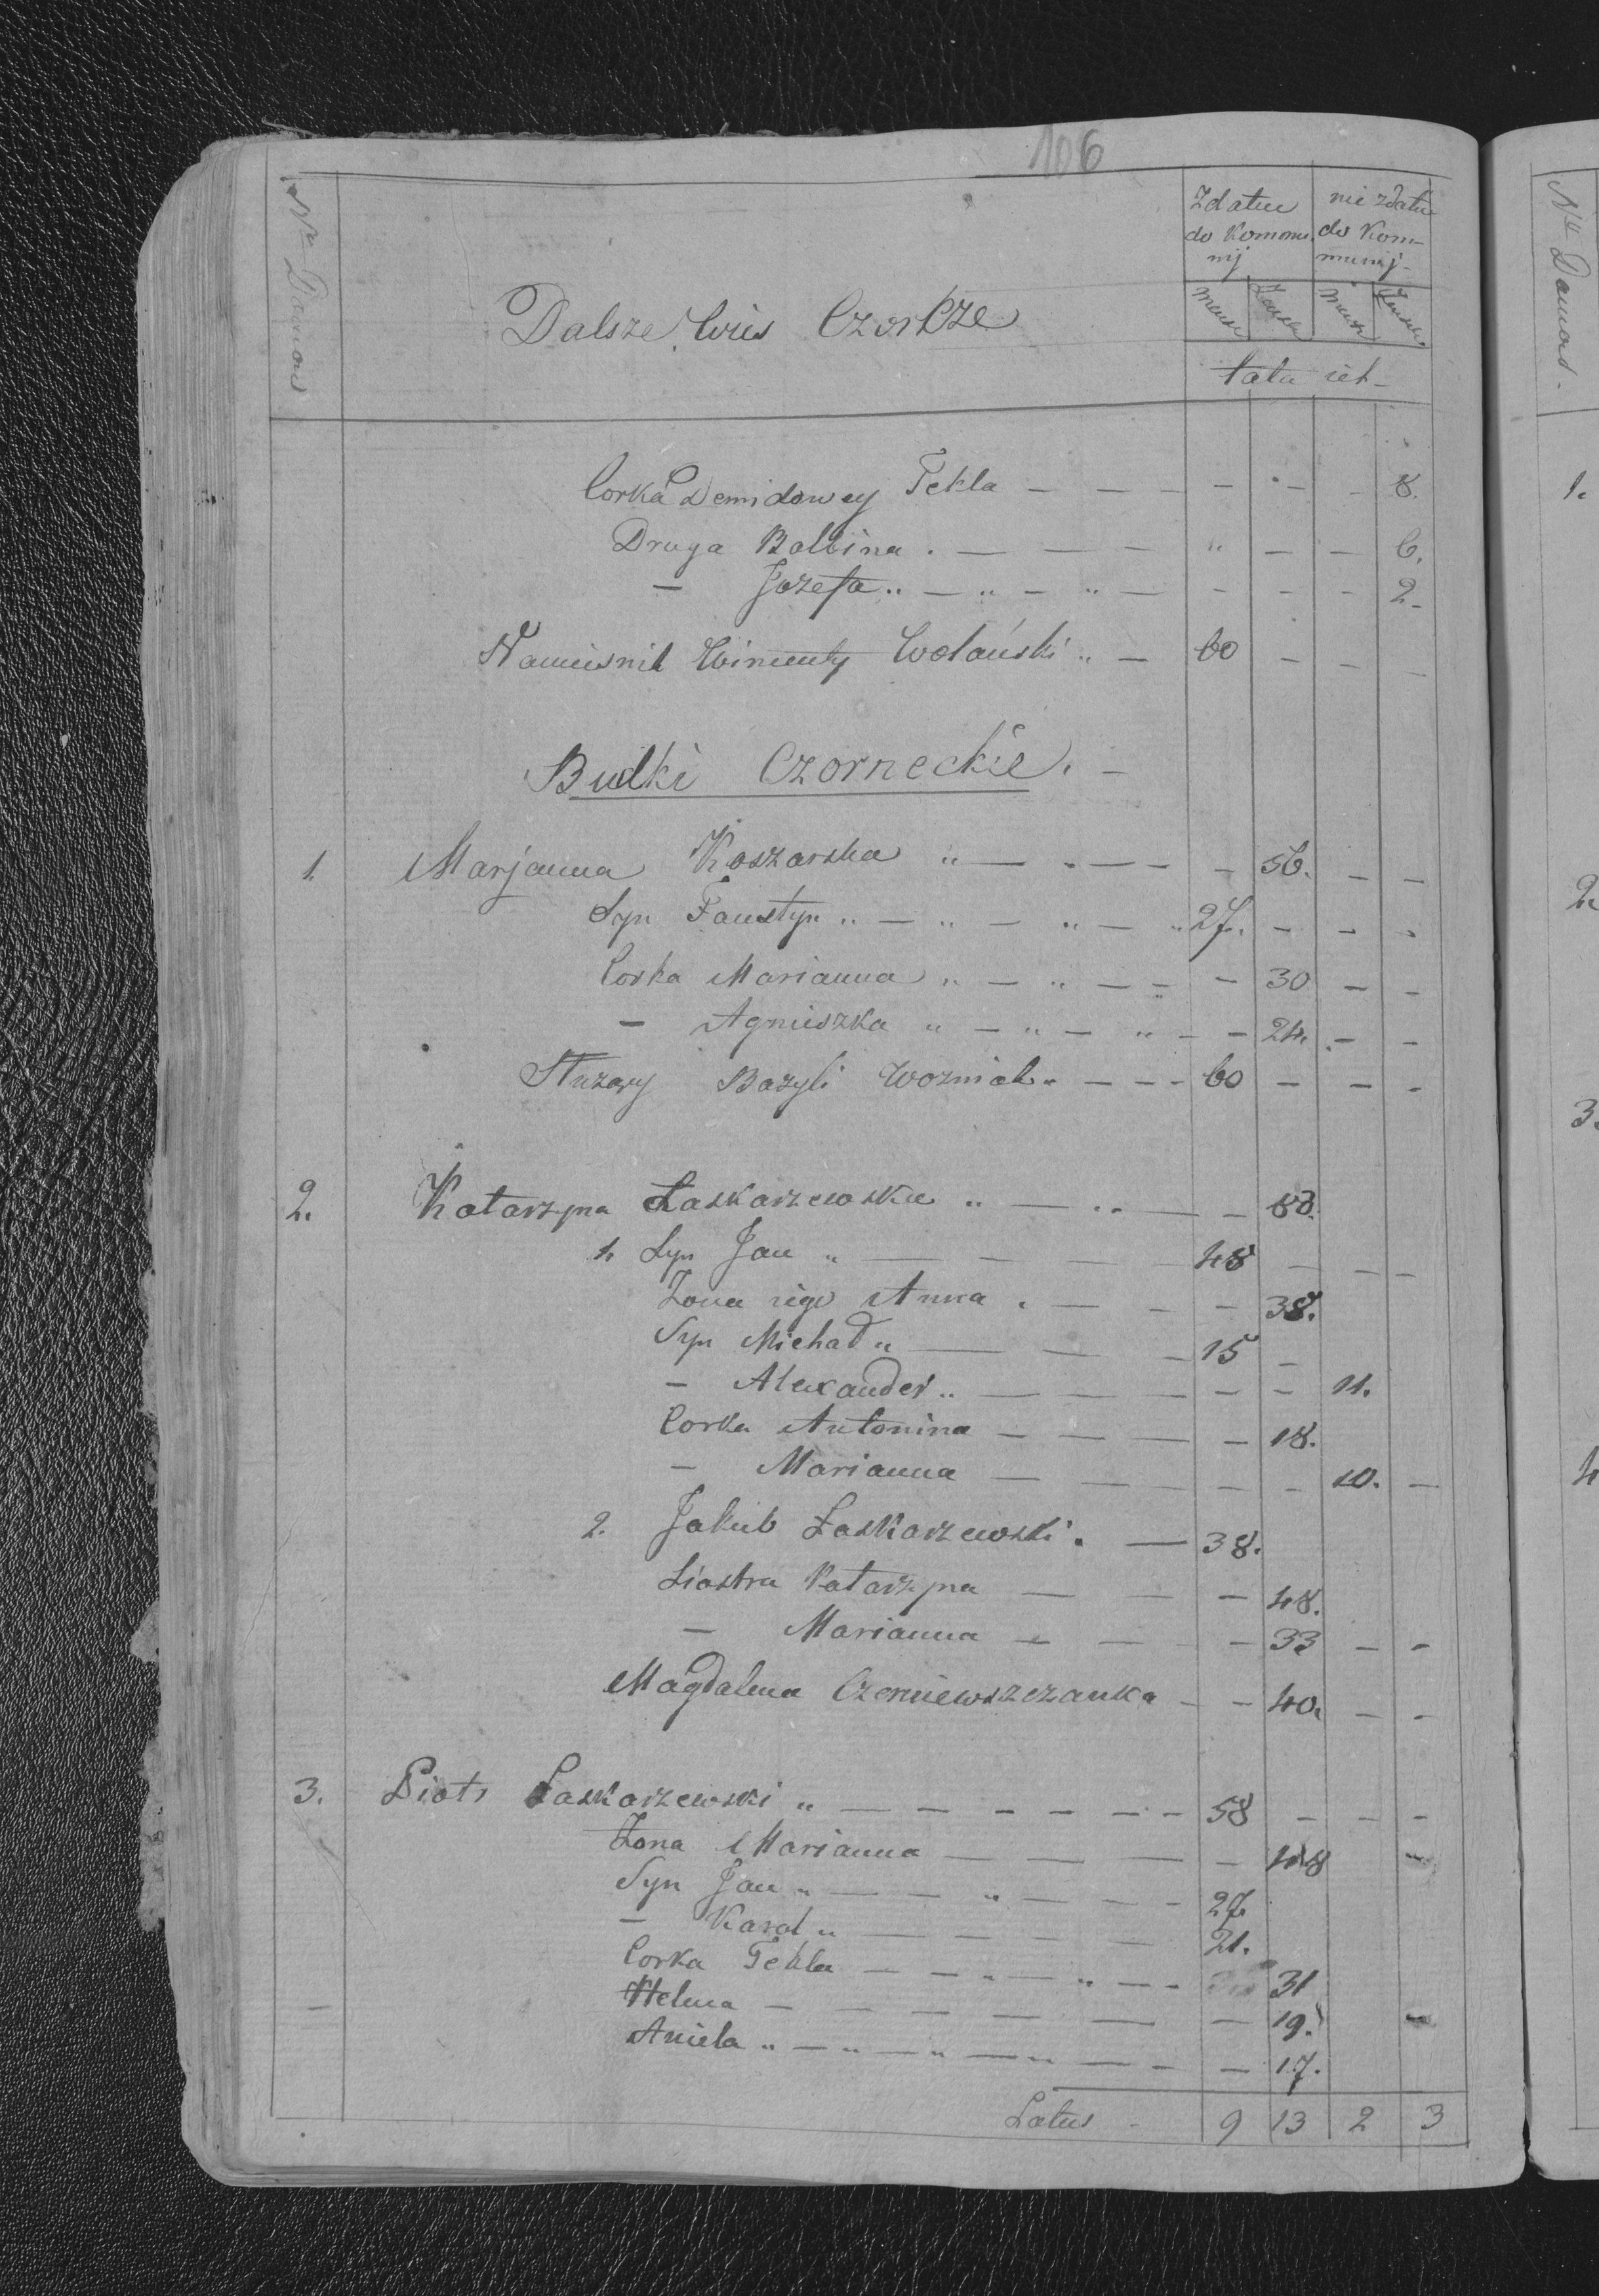 106
Nr Domow
Zdatne do Kommunij
nie zdatne do Kommunij
Męska Żeńska Męska Żeńska
Dalsze Wies Czorkze
Lata ich
Corka Demidowey Tekla — — — — — — 8.
Druga Balbina . — — — " — — 6.
— Jozefa " — " — " — — — — 2-
Namiesnik Wincenty Wolański " — 60 — —
Budki Czorneckie. —
1. Marjanna Koszarska " — . — — — 56. — —
Syn Faustyn " — " — " — " 27. — — -
Corka Marianna " — " — — — 30 — —
— Agnieszka " — " — " — — 24. — —
Służący Bazyli Wozniak " — — — 60 — — —
2. Katarzyna Łaskarzewska " — " — — 83.
1. Syn Jan " — — — — 48 — — —
Żona iego Anna . — — — 38.
Syn Michał " — — — 15 —
— Alexander " — — — — — — 11.
Corka Antonina — — — — 18.
— Marianna — — — — — 10. —
2. Jakub Łaskarzewski . — 38.
Siostra Katarzyna — — — 48.
— Marianna — — — — 33 — -
Magdalena Czerniewszczanka — — 40. — -
3. Piotr Łaskarzewski " — — — — — — 58 — — —
Żona Marianna — — — — 48 —
Syn Jan " — — " — — — 27.
— Karol " — — — — 21.
Corka Tekla — — " — " — — 31
— Helena — — — — — — — 19. —
Aniela " — " — " — " — — — 17.
Latus - 9 13 2 3
Nr Domow.
1.
2.
3.
4